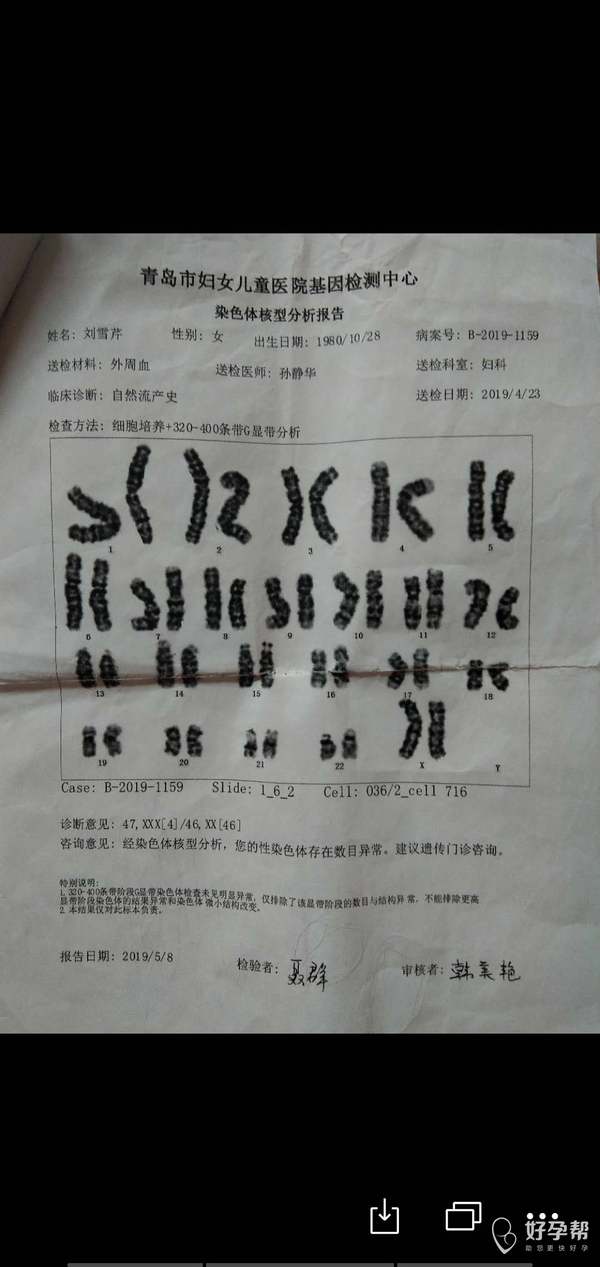 青岛市妇女儿童医院基因检测中心
染色体核型分析报告
姓名: 刘雪芹 性别: 女 出生日期: 1980/10/28 病案号: B-2019-1159
送检材料: 外周血 送检医师: 孙静华 送检科室: 妇科
临床诊断: 自然流产史 送检日期: 2019/4/23
检查方法: 细胞培养+320-400条带G显带分析
1 2 3 4 5
6 7 8 9 10 11 12
13 14 15 16 17 18
19 20 21 22 X Y
Case: B-2019-1159 Slide: 1_6_2 Cell: 036/2_cell 716
诊断意见: 47,XXX[4]/46,XX[46]
咨询意见: 经染色体核型分析，您的性染色体存在数目异常。建议遗传门诊咨询。
特别说明:
1.320-400条带阶段G显带染色体检查未见明显异常，仅排除了该显带阶段的数目与结构异常，不能排除更高
显带阶段染色体的结果异常和染色体微小结构改变。
2.本结果仅对此标本负责。
报告日期: 2019/5/8 检验者: 聂群 审核者: 韩美艳
好孕帮
助您更快好孕